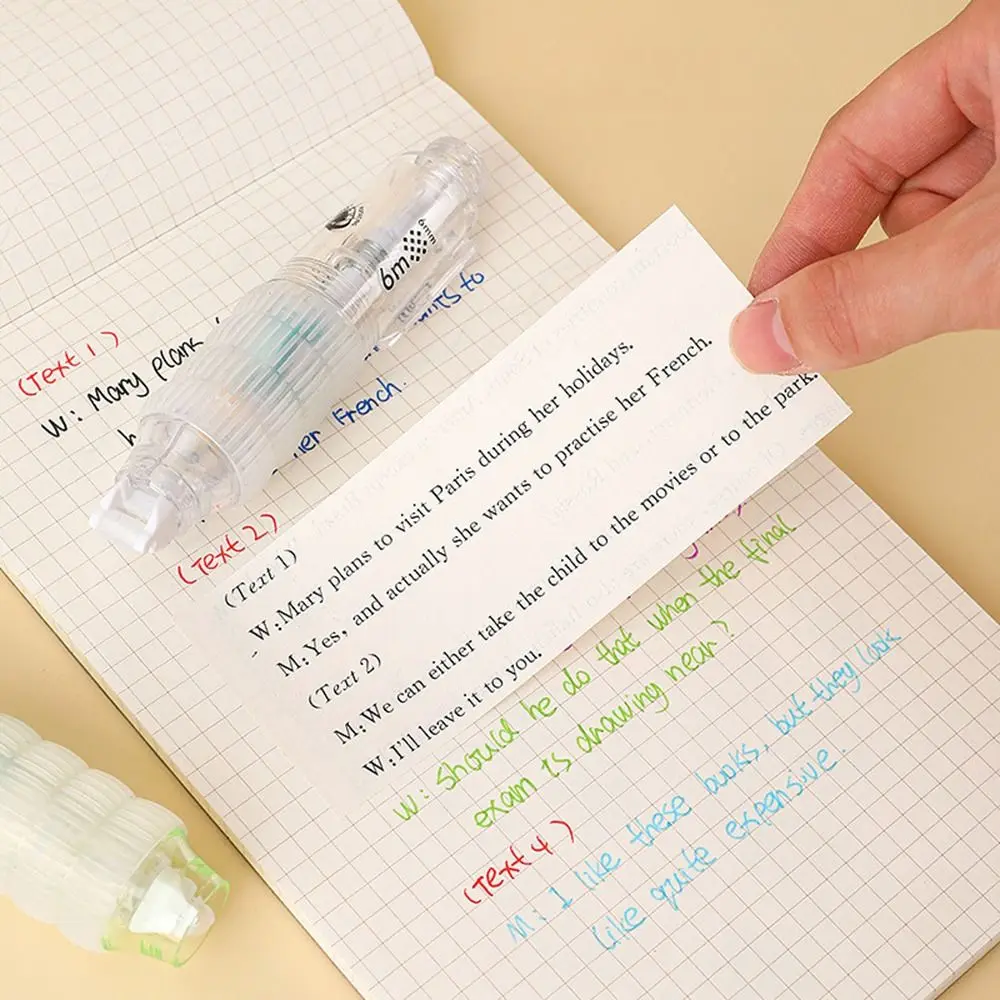 6m
6mm
(Text 1)
W: Mary plans
to
her French.
(Text 2)
(Text 1)
W:Mary plans to visit Paris during her holidays.
M:Yes, and actually she wants to practise her French.
(Text 2)
M:We can either take the child to the movies or to the park.
W:I'll leave it to you.
W: Should he do that when the final
exam is drawing near?
(Text 4)
M: I like these books, but they look
like quite expensive.